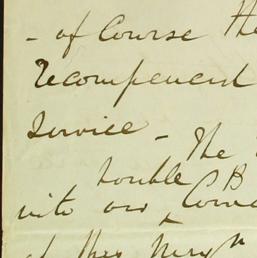 - of Course the
Recompenced
Service - The
double B
into our
of they